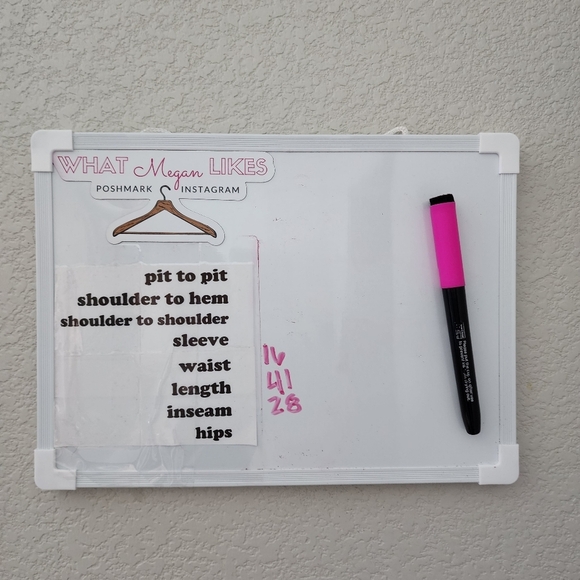 WHAT Megan LIKES
POSHMARK INSTAGRAM
pit to pit
shoulder to hem
shoulder to shoulder
sleeve
waist 16
length 41
inseam 28
hips